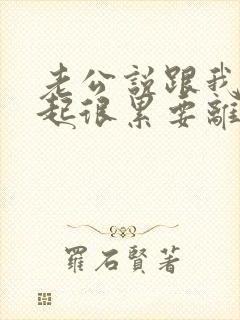 老公說跟我
起很累要離
羅石賢著